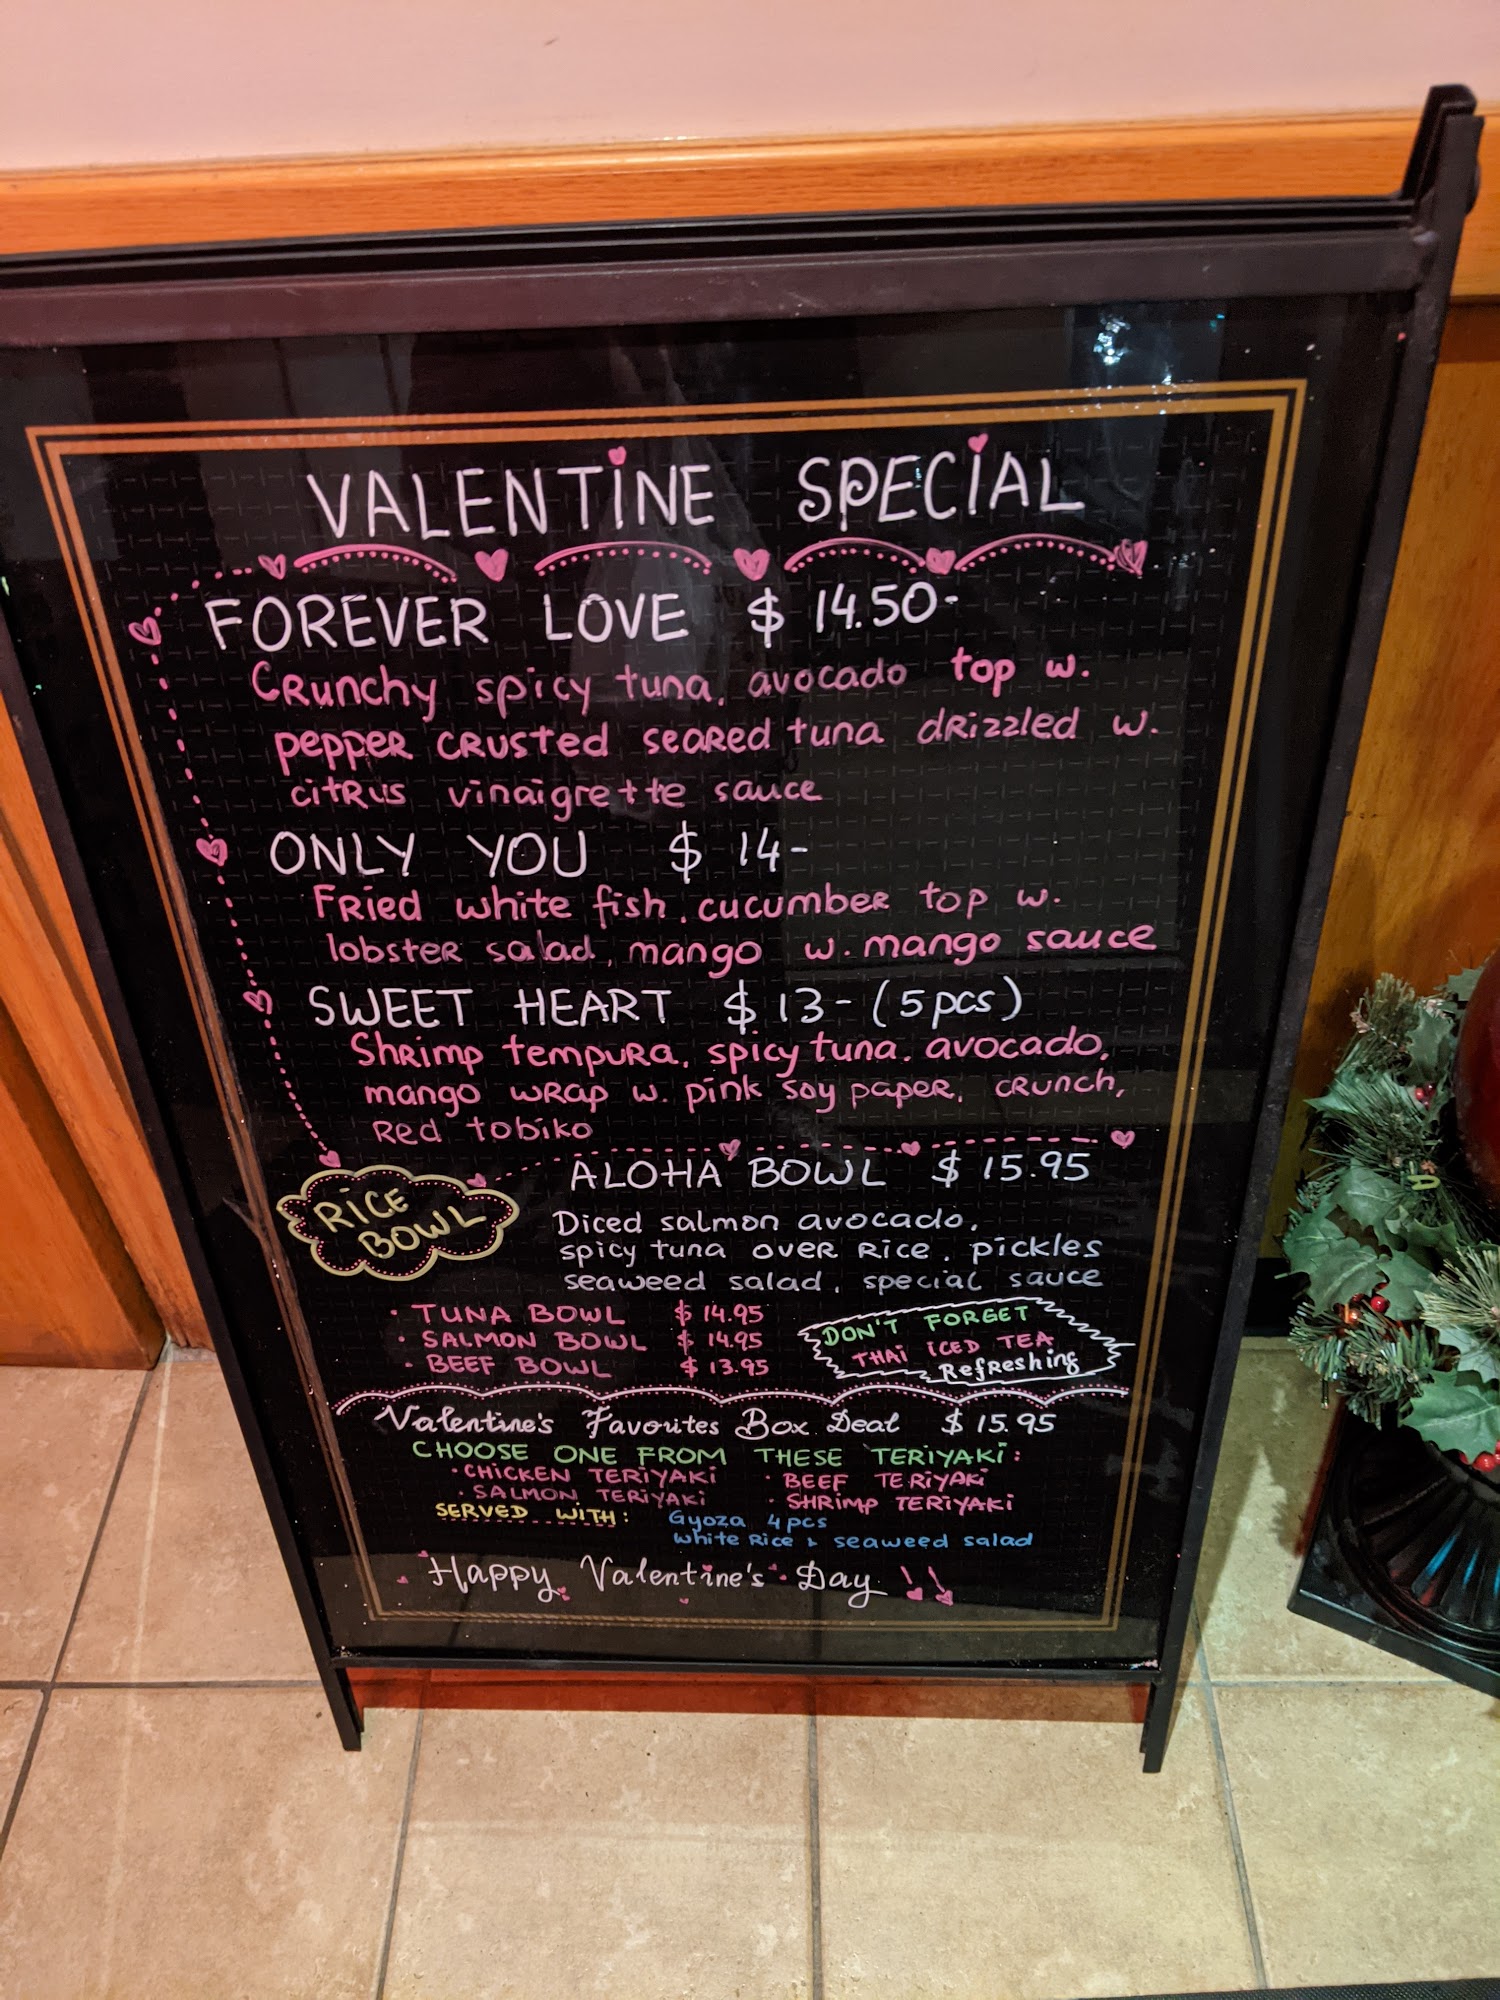 VALENTINE SPECIAL
FOREVER LOVE $ 14.50-
Crunchy spicy tuna, avocado top w.
pepper crusted seared tuna drizzled w.
citrus vinaigrette sauce
ONLY YOU $ 14-
Fried white fish, cucumber top w.
lobster salad, mango w. mango sauce
SWEET HEART $ 13- (5pcs)
Shrimp tempura, spicy tuna, avocado,
mango wrap w. pink soy paper, crunch,
red tobiko
RICE
BOWL
ALOHA BOWL $ 15.95
Diced salmon avocado,
spicy tuna over rice, pickles
seaweed salad, special sauce
• TUNA BOWL $ 14.95
• SALMON BOWL $ 14.95
• BEEF BOWL $ 13.95
DON'T FORGET
THAI ICED TEA
Refreshing
Valentine's Favorites Box Deal $ 15.95
CHOOSE ONE FROM THESE TERIYAKI:
• CHICKEN TERIYAKI • BEEF TERIYAKI
• SALMON TERIYAKI • SHRIMP TERIYAKI
SERVED WITH: Gyoza 4pcs
white rice & seaweed salad
Happy Valentine's Day !!